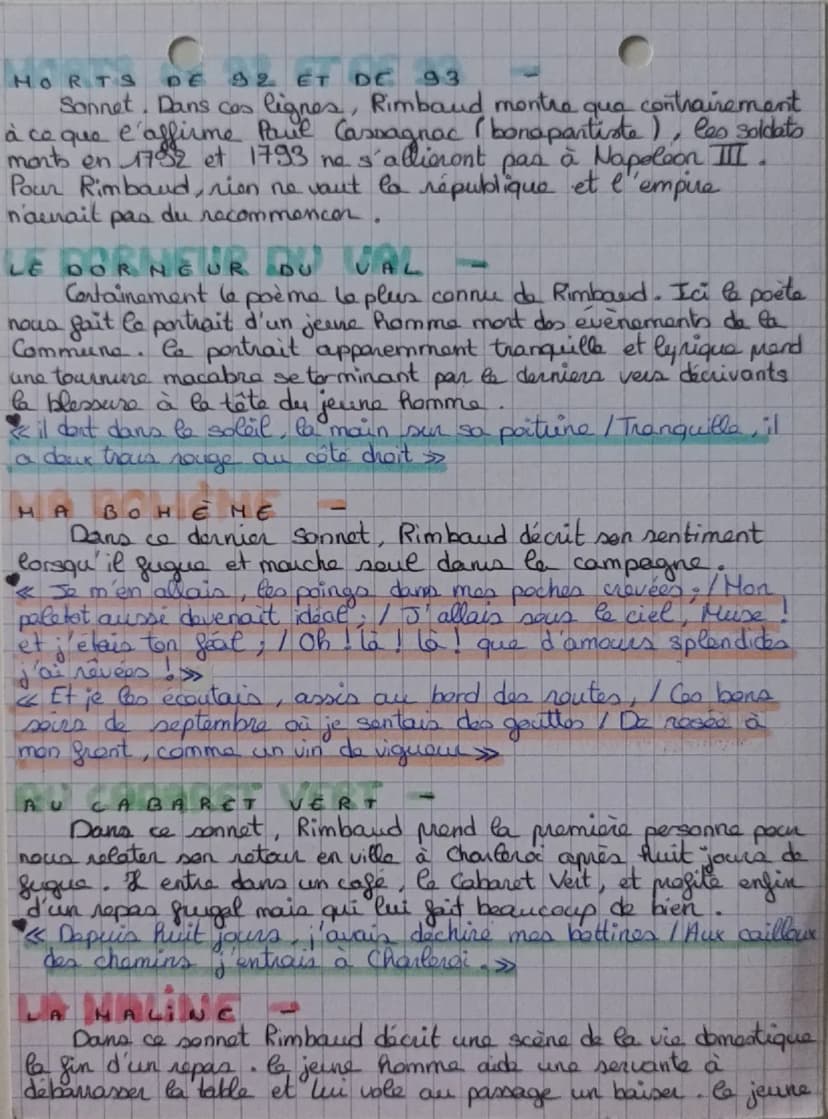 MORTS DE 92 ET DE 93 -
Sonnet. Dans ces lignes, Rimbaud montre que contrairement
à ce que l'affirme Paul Cassagnac (bonapartiste), les soldats
morts en 1792 et 1793 ne s'allieront pas à Napoléon III.
Pour Rimbaud, rien ne vaut la république et l'empire
n'aurait pas du recommencer.
LE DORMEUR DU VAL -
Certainement le poème le plus connu de Rimbaud. Ici le poète
nous fait le portrait d'un jeune homme mort des évènements de la
Commune. Le portrait apparemment tranquille et lyrique prend
une tournure macabre se terminant par le derniers vers décrivants
la blessure à la tête du jeune homme.
« il dort dans le soleil, la main sur sa poitrine / Tranquille, il
a deux trous rouge au côté droit »
MA BOHÈME -
Dans ce dernier sonnet, Rimbaud décrit son sentiment
lorsqu'il fugue et marche seul dans la campagne.
« Je m'en allais, les poings dans mes poches crevées ; / Mon
paletot aussi devenait idéal ; / J'allais sous le ciel, Muse !
et j'étais ton féal ; / Oh ! là ! là ! que d'amours splendides
j'ai rêvées ! »
« Et je les écoutais, assis au bord des routes, / Ces bons
soirs de septembre où je sentais des gouttes / De rosée à
mon front, comme un vin de vigueur »
AU CABARET VERT -
Dans ce sonnet, Rimbaud prend la première personne pour
nous relater son retour en ville à Charleroi après huit jours de
fugue. Il entre dans un café, le Cabaret Vert, et profite enfin
d'un repas frugal mais qui lui fait beaucoup de bien.
« Depuis huit jours, j'avais déchiré mes bottines / Aux cailloux
des chemins j'entrais à Charleroi. »
LA MALINE -
Dans ce sonnet Rimbaud décrit une scène de la vie domestique
la fin d'un repas. le jeune homme aide une servante à
débarrasser la table et lui vole au passage un baiser. le jeune